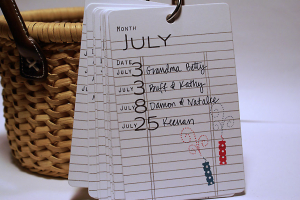 MONTH
JULY
DATE
JULY 3 Grandma Betty
JULY 3 & Kathy
JULY 8 Damon & Natalie
JULY 25 Keenan